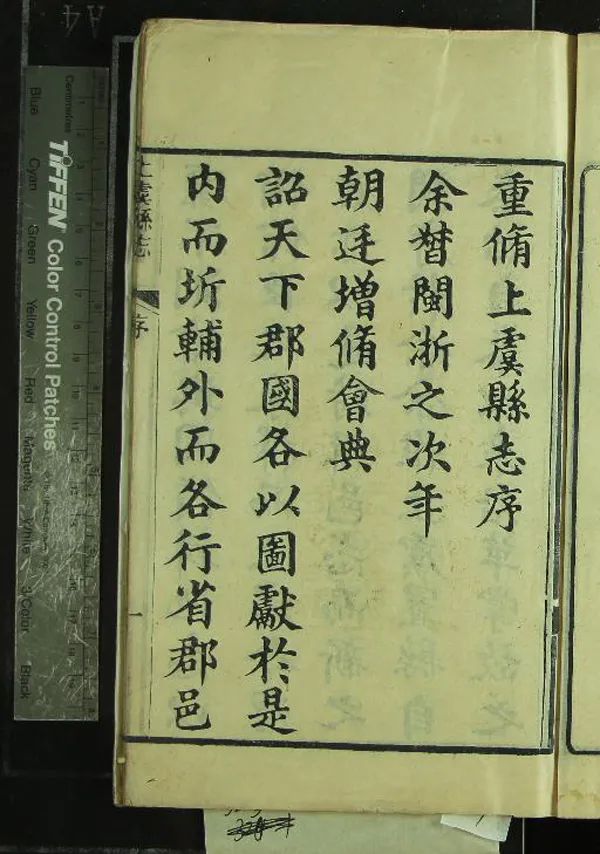 重脩上虞縣志序
余督閩浙之次年
朝廷增脩會典
詔天下郡國各以圖獻於是
內而圻輔外而各行省郡邑
上虞縣志
序
一
A4
Centimetres
TIFFEN Color Control Patches
Blue
Cyan
Green
Yellow
Red
Magenta
White
3/Color
Black